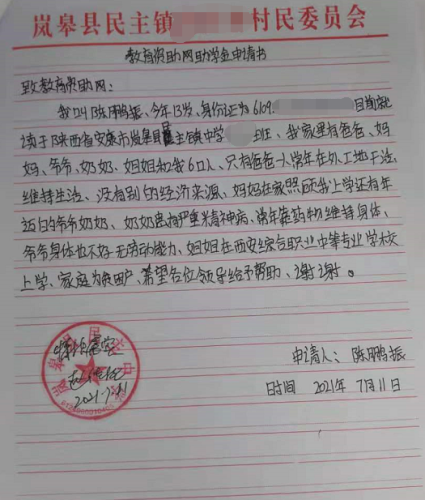 岚皋县民主镇 村民委员会
教育资助网助学金申请书
致教育资助网：
我叫陈鹏振，今年13岁，身份证为6109. 目前就
读于陕西省安康市岚皋县民主镇中学 班，我家里有爸爸、妈
妈、爷爷、奶奶、姐姐和我6口人，只有爸爸一人常年在外工地干活，
维持生活、没有别的经济来源，妈妈在家照顾我上学还有年
迈的爷爷奶奶，奶奶患有严重精神病，常年靠药物维持身体，
爷爷身体也不好无劳动能力，姐姐在西安综合职业中等专业学校
上学、家庭为贫困户，希望各位领导给予帮助、谢谢。
情况属实
2021.7.11
申请人：陈鹏振
时间 2021年7月11日